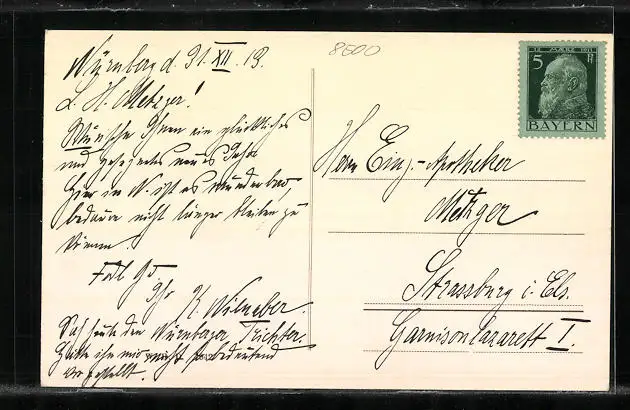 8500
Nürnberg d. 31. XII. 13.
L. H. Metzger!
Wünsche Ihnen ein glückliches
und gesegnetes neues Jahr
Hier in N. ist es wunderbar,
bedaure nicht länger bleiben zu
können.
Ihr K.
Sah heute den Nürnberger Trichter.
Hatte ihn mir nicht so bedeutend
vorgestellt.
12. MÄRZ 1911
5 ₰
BAYERN
Herrn Einj.-Apotheker
Metzger
Strassburg i. Els.
Garnisonlazarett I.